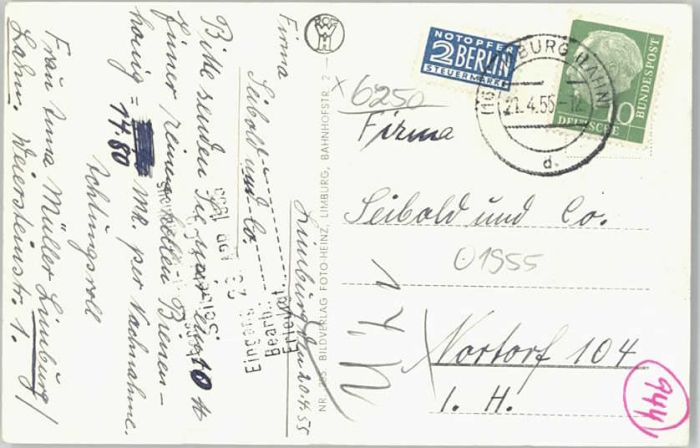 Firma
Seibold und Co.
Limburg, den 20.4.55
Bitte senden Sie
10 H
Bienen-
honig =
Mk. per Nachnahme.
14.80
Achtungsvoll
Frau Anna Müller Limburg/
Lahn. Weiersteinstr. 1.
Eingang
Bearb.:
Erledigt
NR. BILDVERLAG FOTO-HEINZ, LIMBURG, BAHNHOFSTR. 2
NOTOPFER
2 BERLIN
STEUERMARKE
LIMBURG (LAHN)
21.4.55-12
d
DEUTSCHE
BUNDESPOST
x 6250
Firma
Seibold und Co.
01955
Nortorf 104
i. H.
944